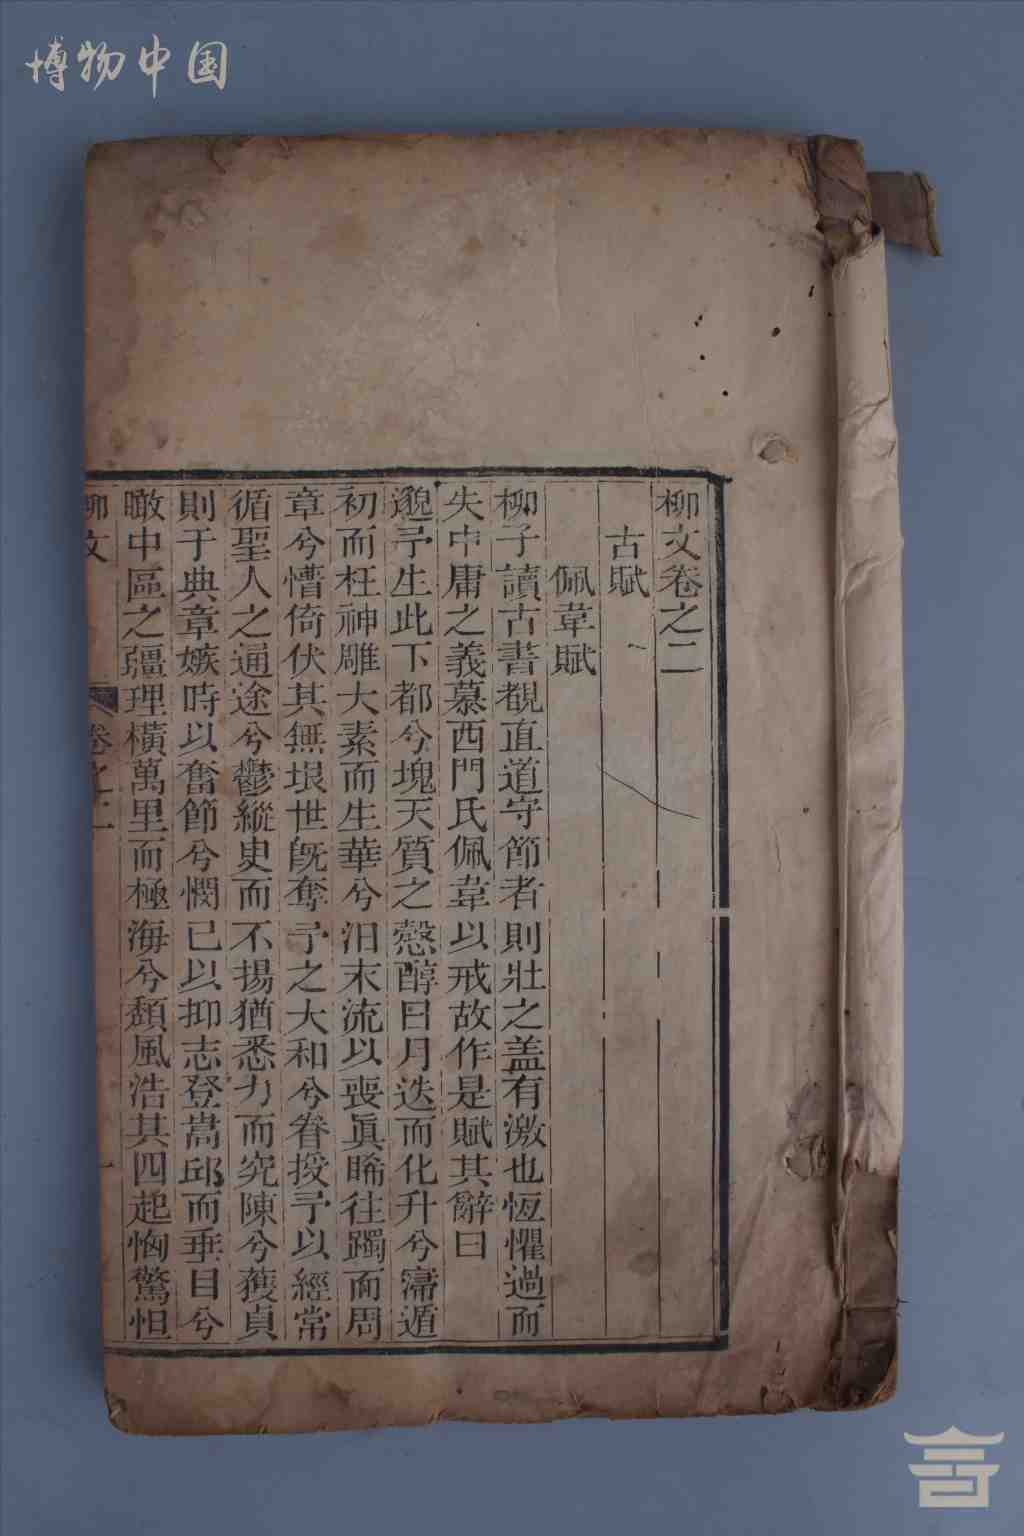 博物中国
柳文卷之二
古賦
佩韋賦
柳子讀古書覩直道守節者則壯之盖有激也恆懼過而
失中庸之義慕西門氏佩韋以戒故作是賦其辭曰
邈予生此下都兮塊天質之慤醇日月迭而化升兮寖遁
初而枉神雕大素而生華兮汩末流以喪眞睎往躅而周
章兮懵倚伏其無垠世旣奪予之大和兮眷授予以經常
循聖人之通途兮鬱縱臾而不揚猶悉力而究陳兮獲貞
則于典章嫉時以奮節兮憫已以抑志登嵩邱而垂目兮
瞰中區之疆理橫萬里而極海兮頽風浩其四起恟驚怛
柳文
卷之二